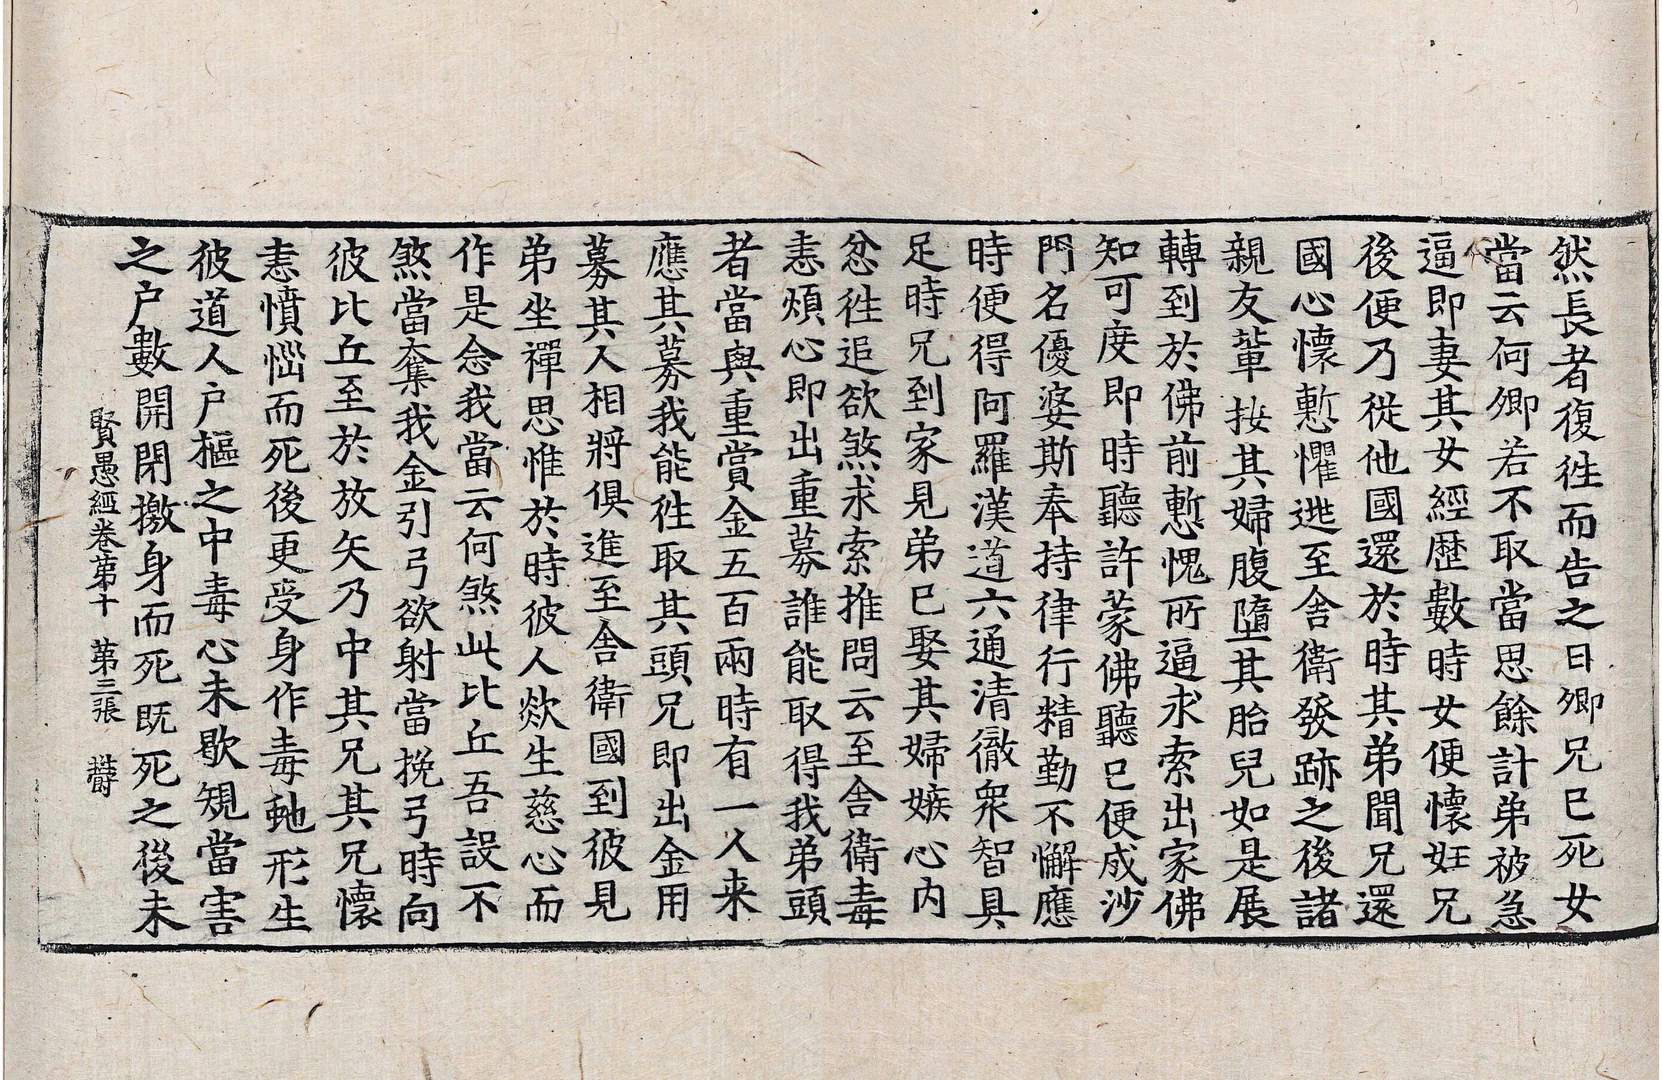 然長者復徃而告之曰卿兄已死女
當云何卿若不取當思餘計弟被急
逼即妻其女經歷數時女便懷妊兄
後便乃從他國還於時其弟聞兄還
國心懷慙懼逃至舍衛發跡之後諸
親友輩按其婦腹墮其胎兒如是展
轉到於佛前慙愧所逼求索出家佛
知可度即時聽許蒙佛聽已便成沙
門名優婆斯奉持律行精勤不懈應
時便得阿羅漢道六通清徹衆智具
足時兄到家見弟已娶其婦嫉心内
忿徃追欲煞求索推問云至舍衛毒
恚煩心即出重募誰能取得我弟頭
者當與重賞金五百兩時有一人来
應其募我能徃取其頭兄即出金用
募其人相將俱進至舍衛國到彼見
弟坐禪思惟於時彼人欻生慈心而
作是念我當云何煞此比丘吾設不
煞當奪我金引弓欲射當挽弓時向
彼比丘至於放矢乃中其兄其兄懷
恚憤惱而死後更受身作毒虵形生
彼道人户樞之中毒心未歇規當害
之户數開閉撽身而死既死之後未
賢愚經卷第十 第三張 欝